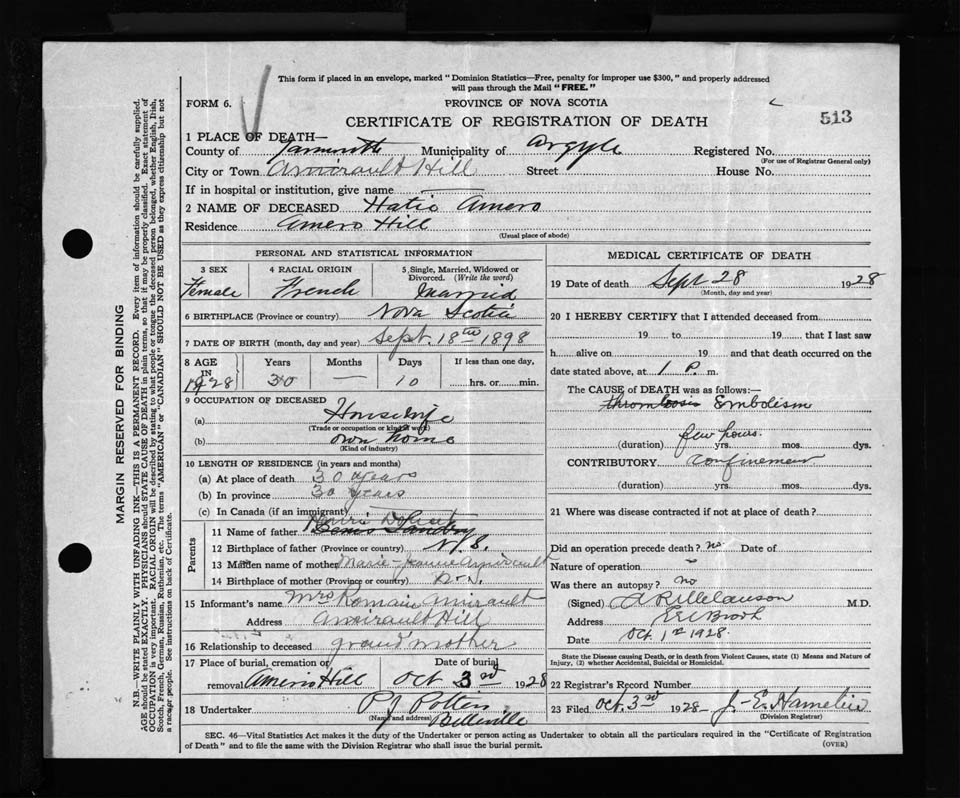 This form if placed in an envelope, marked "Dominion Statistics—Free, penalty for improper use $300," and properly addressed
will pass through the Mail "FREE."
FORM 6.
PROVINCE OF NOVA SCOTIA
CERTIFICATE OF REGISTRATION OF DEATH
513
1 PLACE OF DEATH—
County of Yarmouth Municipality of Argyle Registered No.
(For use of Registrar General only)
City or Town Amirault Hill Street House No.
If in hospital or institution, give name
2 NAME OF DECEASED Hatie Amero
Residence Amero Hill
(Usual place of abode)
PERSONAL AND STATISTICAL INFORMATION
3 SEX 4 RACIAL ORIGIN 5 Single, Married, Widowed or Divorced. (Write the word)
Female French Married
6 BIRTHPLACE (Province or country) Nova Scotia
7 DATE OF BIRTH (month, day and year) Sept 18th 1898
8 AGE IN 1928 Years 30 Months — Days 10 If less than one day, hrs. or min.
9 OCCUPATION OF DECEASED
(a) Housewife
(Trade or occupation or kind of work)
(b) own home
(Kind of industry)
10 LENGTH OF RESIDENCE (in years and months)
(a) At place of death 30 years
(b) In province 30 years
(c) In Canada (if an immigrant)
Parents
11 Name of father
12 Birthplace of father (Province or country) N.S.
13 Maiden name of mother Marie Jeanne Amirault
14 Birthplace of mother (Province or country)
15 Informant's name Mrs Romain Amirault
Address Amirault Hill
16 Relationship to deceased grand mother
17 Place of burial, cremation or removal Amero Hill Date of burial Oct 3rd 1928
18 Undertaker P J Pottier
(Name and address) Belleville
MEDICAL CERTIFICATE OF DEATH
19 Date of death Sept 28 1928
(Month, day and year)
20 I HEREBY CERTIFY that I attended deceased from
19 to 19, that I last saw
h alive on 19 and that death occurred on the
date stated above, at 1 P. m.
The CAUSE of DEATH was as follows:—
thrombosis Embolism
few hours.
(duration) yrs. mos. dys.
CONTRIBUTORY confinement
(duration) yrs. mos. dys.
21 Where was disease contracted if not at place of death?
Did an operation precede death? no Date of
Nature of operation
Was there an autopsy? no
(Signed) M.D.
Address Eel Brook
Date Oct 1st 1928.
State the Disease causing Death, or in death from Violent Causes, state (1) Means and Nature of
Injury, (2) whether Accidental, Suicidal or Homicidal.
22 Registrar's Record Number
23 Filed Oct. 3rd 1928
(Division Registrar)
SEC. 46—Vital Statistics Act makes it the duty of the Undertaker or person acting as Undertaker to obtain all the particulars required in the "Certificate of Registration
of Death" and to file the same with the Division Registrar who shall issue the burial permit. (OVER)
MARGIN RESERVED FOR BINDING
N.B.—WRITE PLAINLY WITH UNFADING INK—THIS IS A PERMANENT RECORD. Every item of information should be carefully supplied.
AGE should be stated EXACTLY. PHYSICIANS should STATE CAUSE OF DEATH in plain terms, so that it may be properly classified. Exact statement of
OCCUPATION is very important. RACIAL ORIGIN will be described by stating to what people or tongue the deceased person belonged, whether English, Irish,
Scotch, French, German, Russian, Ruthenian, etc. The terms "AMERICAN" or "CANADIAN" SHOULD NOT BE USED as they express citizenship but not
a race or people. See instructions on back of Certificate.